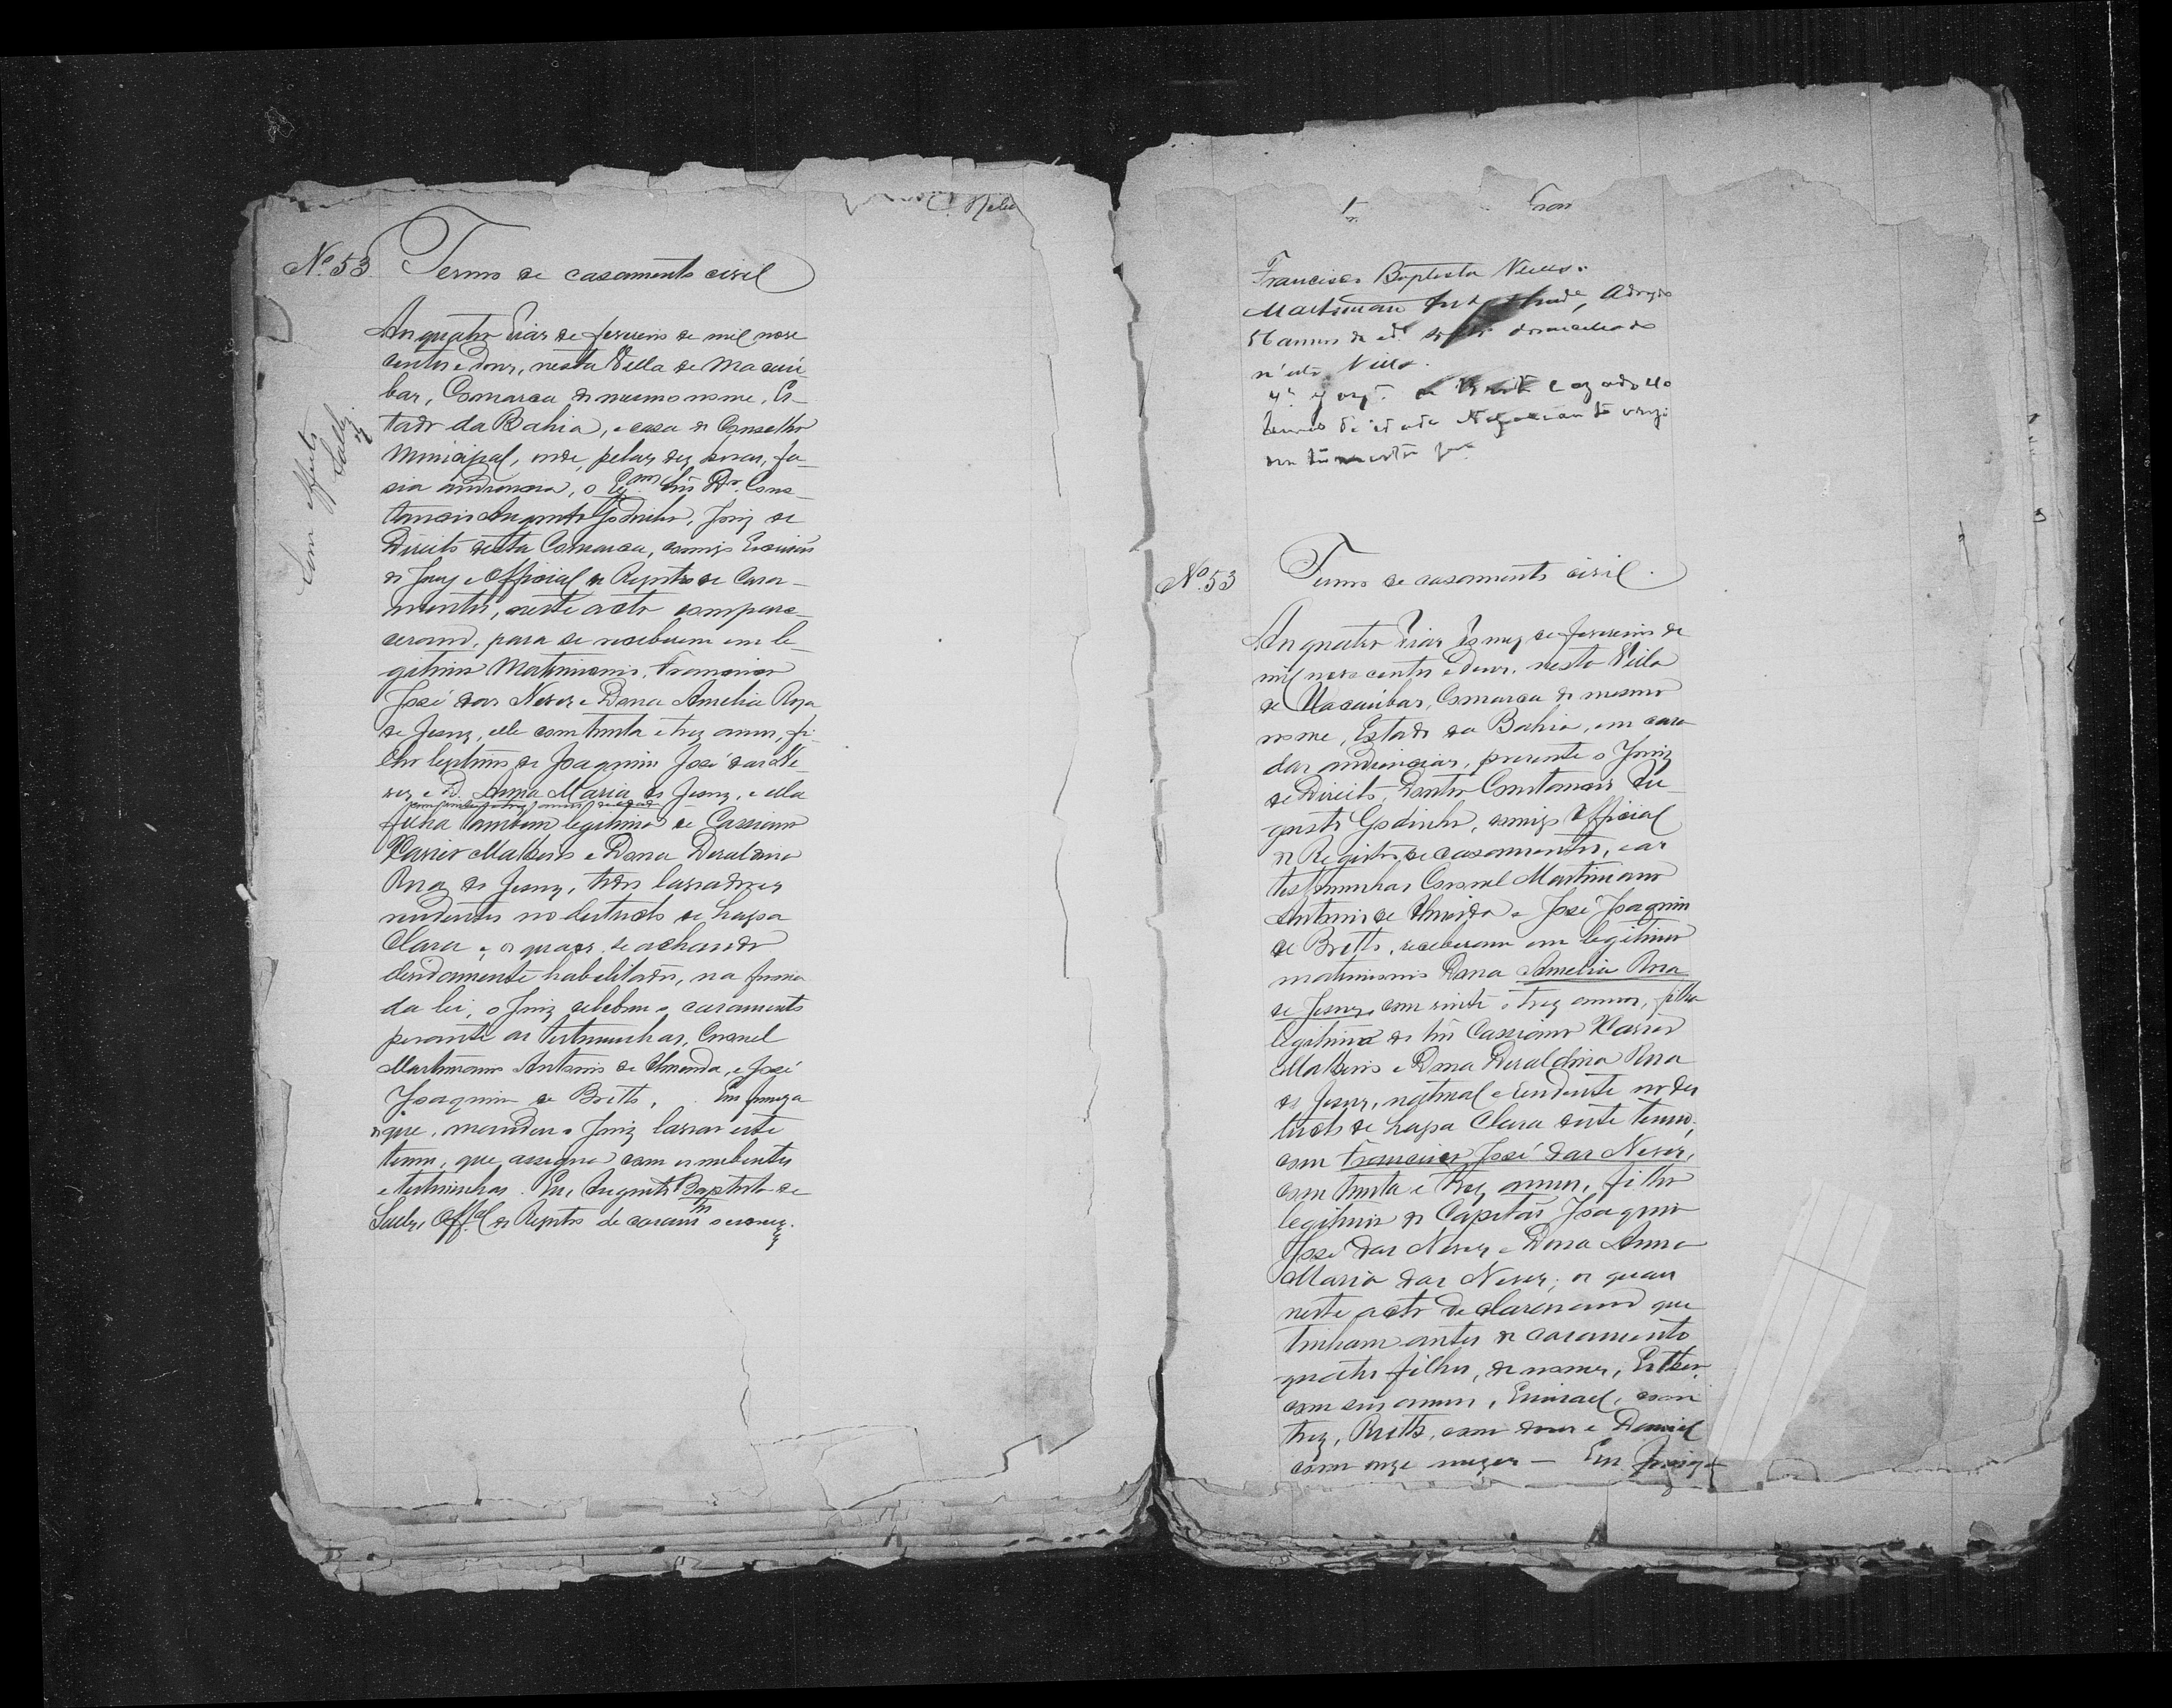 Nº 53. Termo de casamento civil
Sem effeito
Aos quatro dias de fevereiro de mil nove
centos e dous, nesta Villa de Macaú
bas, Comarca do mesmo nome, Es-
tado da Bahia, e casa do Conselho
Municipal, onde, pelas dez horas, fa-
zia audiencia, o Exmo Snr. Dr. Cons-
tancio Augusto Godinho, Juiz de
Direito desta Comarca, comigo Escrivão
do Jury e Official do Registro de Casa-
mentos, neste acto compare-
ceram, para se receberem em le-
gitimo Matrimonio, Francisco
José das Neves e Dona Amelia Roza
de Jesuz, elle com trinta e trez annos, fi-
lho legitimo de Joaquim José das Ne-
ves e D. Anna Maria de Jesuz, e ella
filha tambem legitima de Cassiano
Xavier Malheiros e Dona Deraldina
Roza de Jesuz, todos lavradores
residentes no destricto de Lapa
Clara e, os quaes, se achando
devidamente habelitados, na forma
da lei, o Juiz celebrou o casamento
perante as testemunhas, Coronel
Martiniano Antonio de Almeida, e José
Joaquim de Britto. Em firmeza
do que, mandou o Juiz lavrar este
termo, que assigna com os nubentes
e testemunhas. Eu, Augusto Baptista de
Offal do Registro de casamtos o escrevy.
Francisco Baptista Neves.
Martiniano
56 annos de ede domiciliado
n'esta Villa.
annos de idade Negociante
Nº 53 Termo de casamento civil.
Aos quatro dias do mez de fevereiro de
mil nove centos e dous, nesta Villa
de Macaúbas, Comarca do mesmo
nome, Estado da Bahia, em casa
das audiencias, presente o Juiz
de Direito, Doutor Constancio Au-
gusto Godinho, comigo Official
do Registro de casamentos, e as
testemunhas Coronel Martiniano
Antonio de Almeida e José Joaquim
de Britto, receberam em legitimo
matrimonio Dona Amelia Roza
de Jesuz, com vinte e trez annos, filha
legitima do Snr. Cassiano Xavier
Malheiros e Dona Deraldina Roza
de Jesuz, natural e residente no des
tricto de Lapa Clara deste termo,
com Francisco José das Neves,
com trinta e trez annos, filho
legitimo do Capitão Joaquim
José das Neves e Dona Anna
Maria das Neves; os quaes
neste acto declararam que
tinham antes do casamento
quatro filhos, de nomes, Esther,
com seis annos, com
trez, Ruth, com dous e Daniel
com onze mezes — Em firmeza